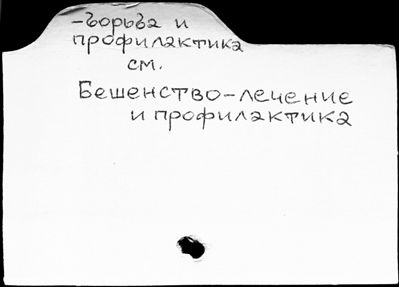 -борьба и
профилактика
см.
Бешенство-лечение
и профилактика